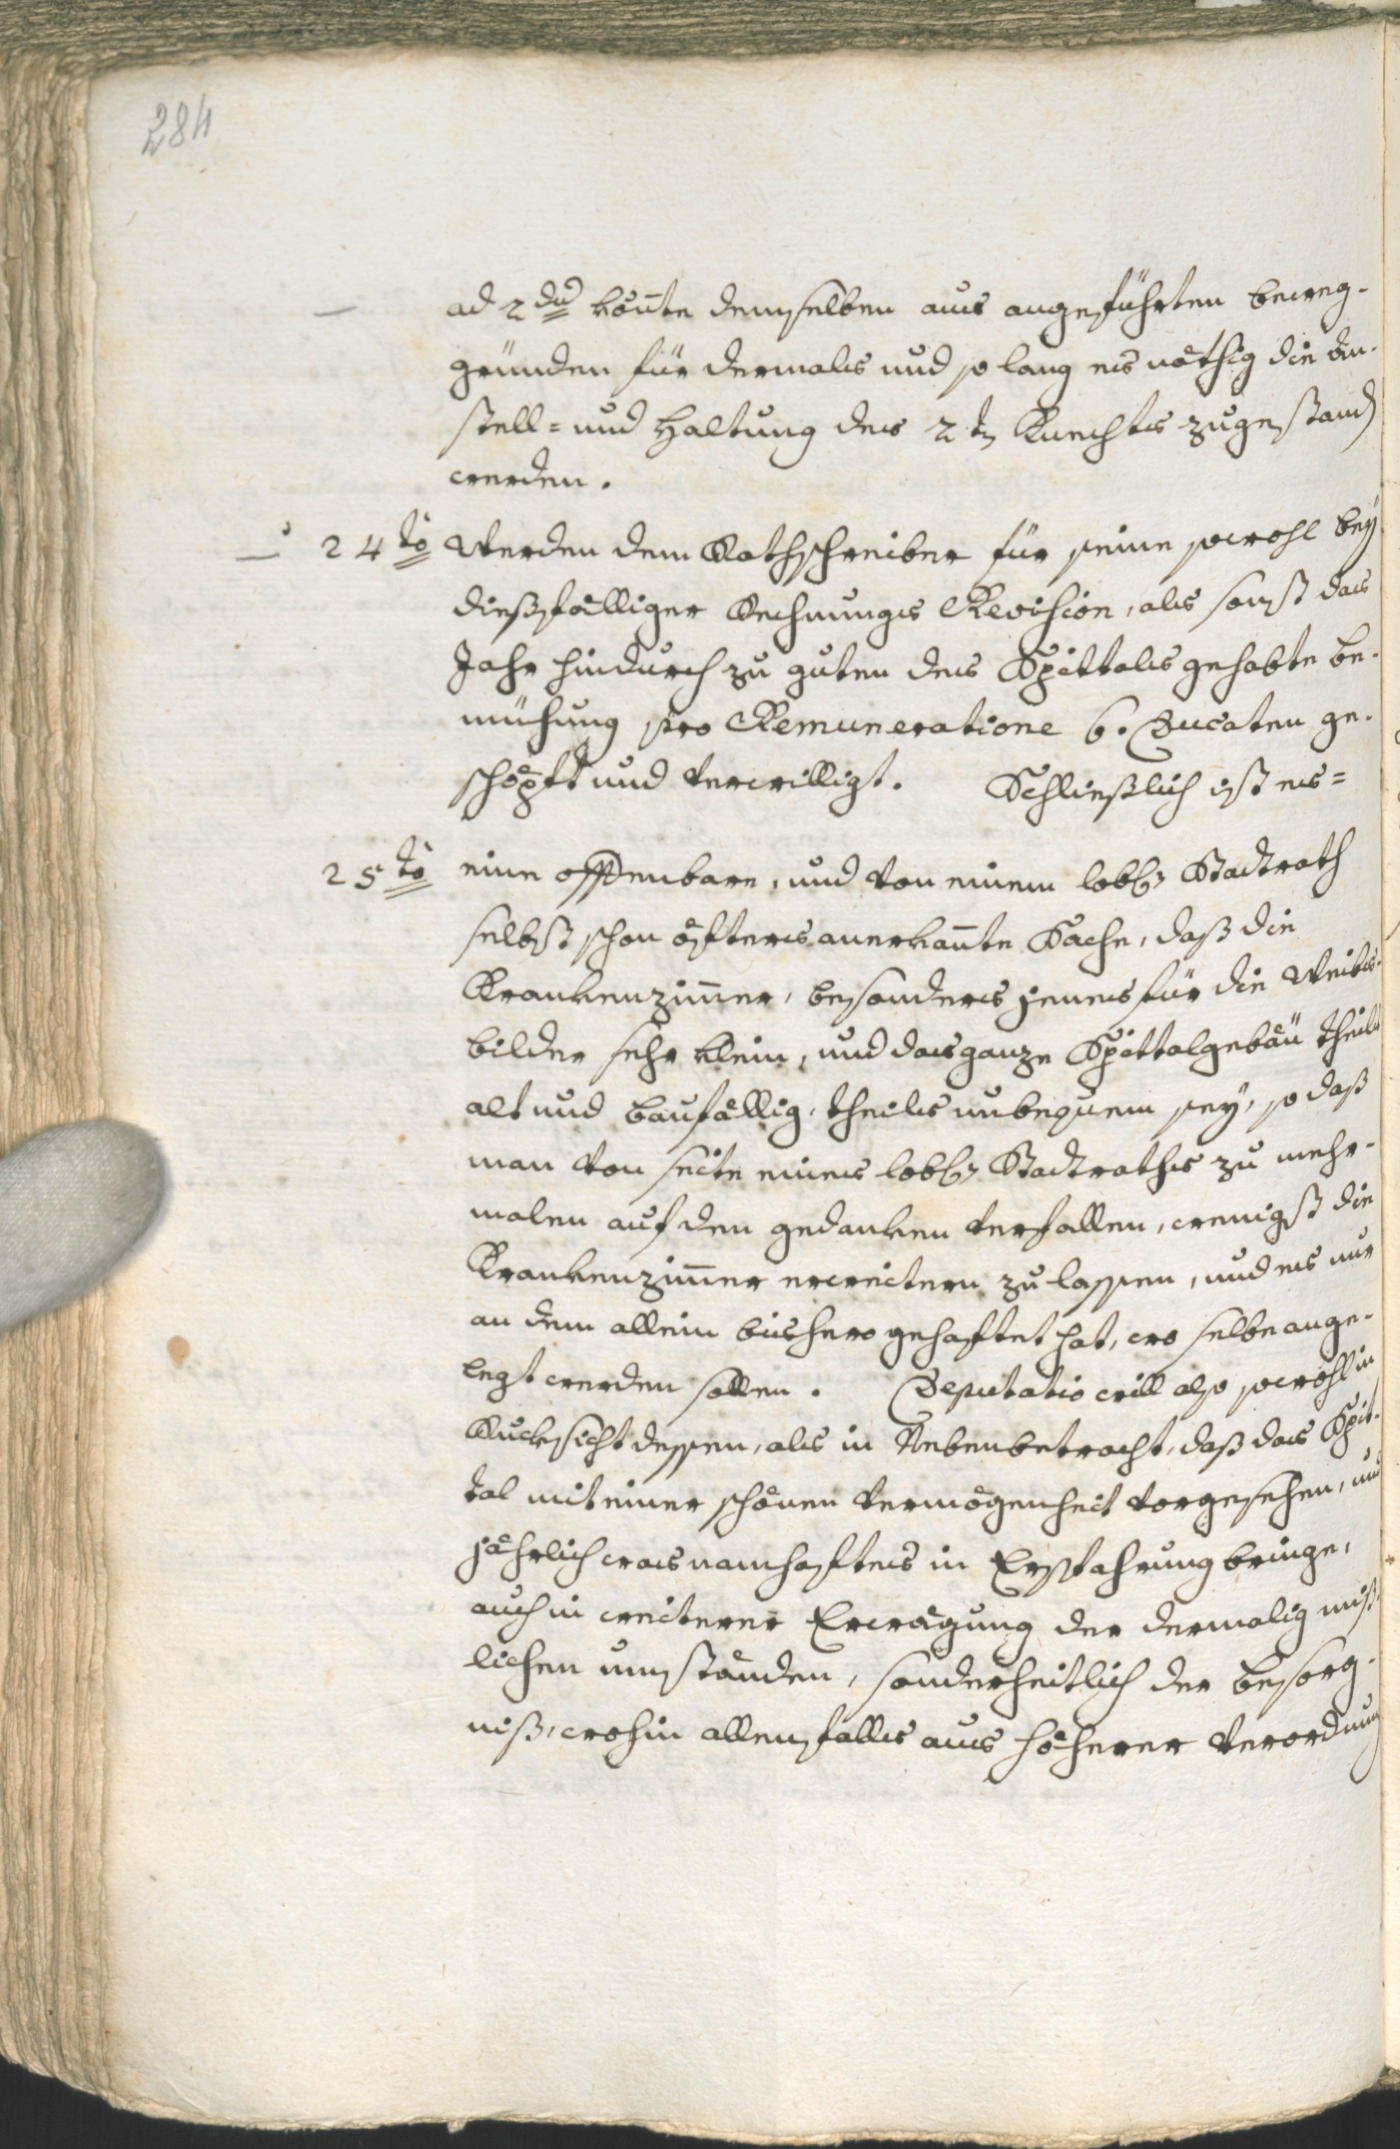 284
ad 2dũ könte demselben aus angeführten beweg-
gründen für dermals und so lang es nöthig die An-
stell= und Haltung des 2tn Knechts zugestand
werden.
24to Werden dem Rathschreiber für seine sowohl beÿ
dießfälliger Rechnungs Revision, als sonst das
Jahr hindurch zu guten des Spittals gehabte be-
mühung pro Remuneratione 6. Ducaten ge-
schöpft und verwilligt. Schließlich ist es=
25to eine offenbare, und von einem lobl. Stadtrath
selbst schon öfters anerkante Sache, daß die
Krankenzimer, besonders jenes für die Weibs-
bilder sehr klein, und das ganze Spittalgebäu theils
alt und baufällig, theils unbequem seÿ, so daß
man von seite eines lobl. Stadtraths zu mehr-
malen auf den gedanken verfallen, wenigst die
Krankenzimer erweitern zu lassen, und es nur
an dem allein bishero gehaftet hat, wo selbe ange-
legt werden sollen. Deputatio will also sowohl in
Rucksicht dessen, als in Nebenbetracht, daß das Spit-
tal mit einer schönen Vermögenheit vorgesehen, und
jährlich was namhaftes in Erspahrung bringe,
auch in weiterer Erwägung der dermalig miß-
lichen umständen, sonderheitlich der besorg-
niß, wohin allenfalls aus höherer Verordnung